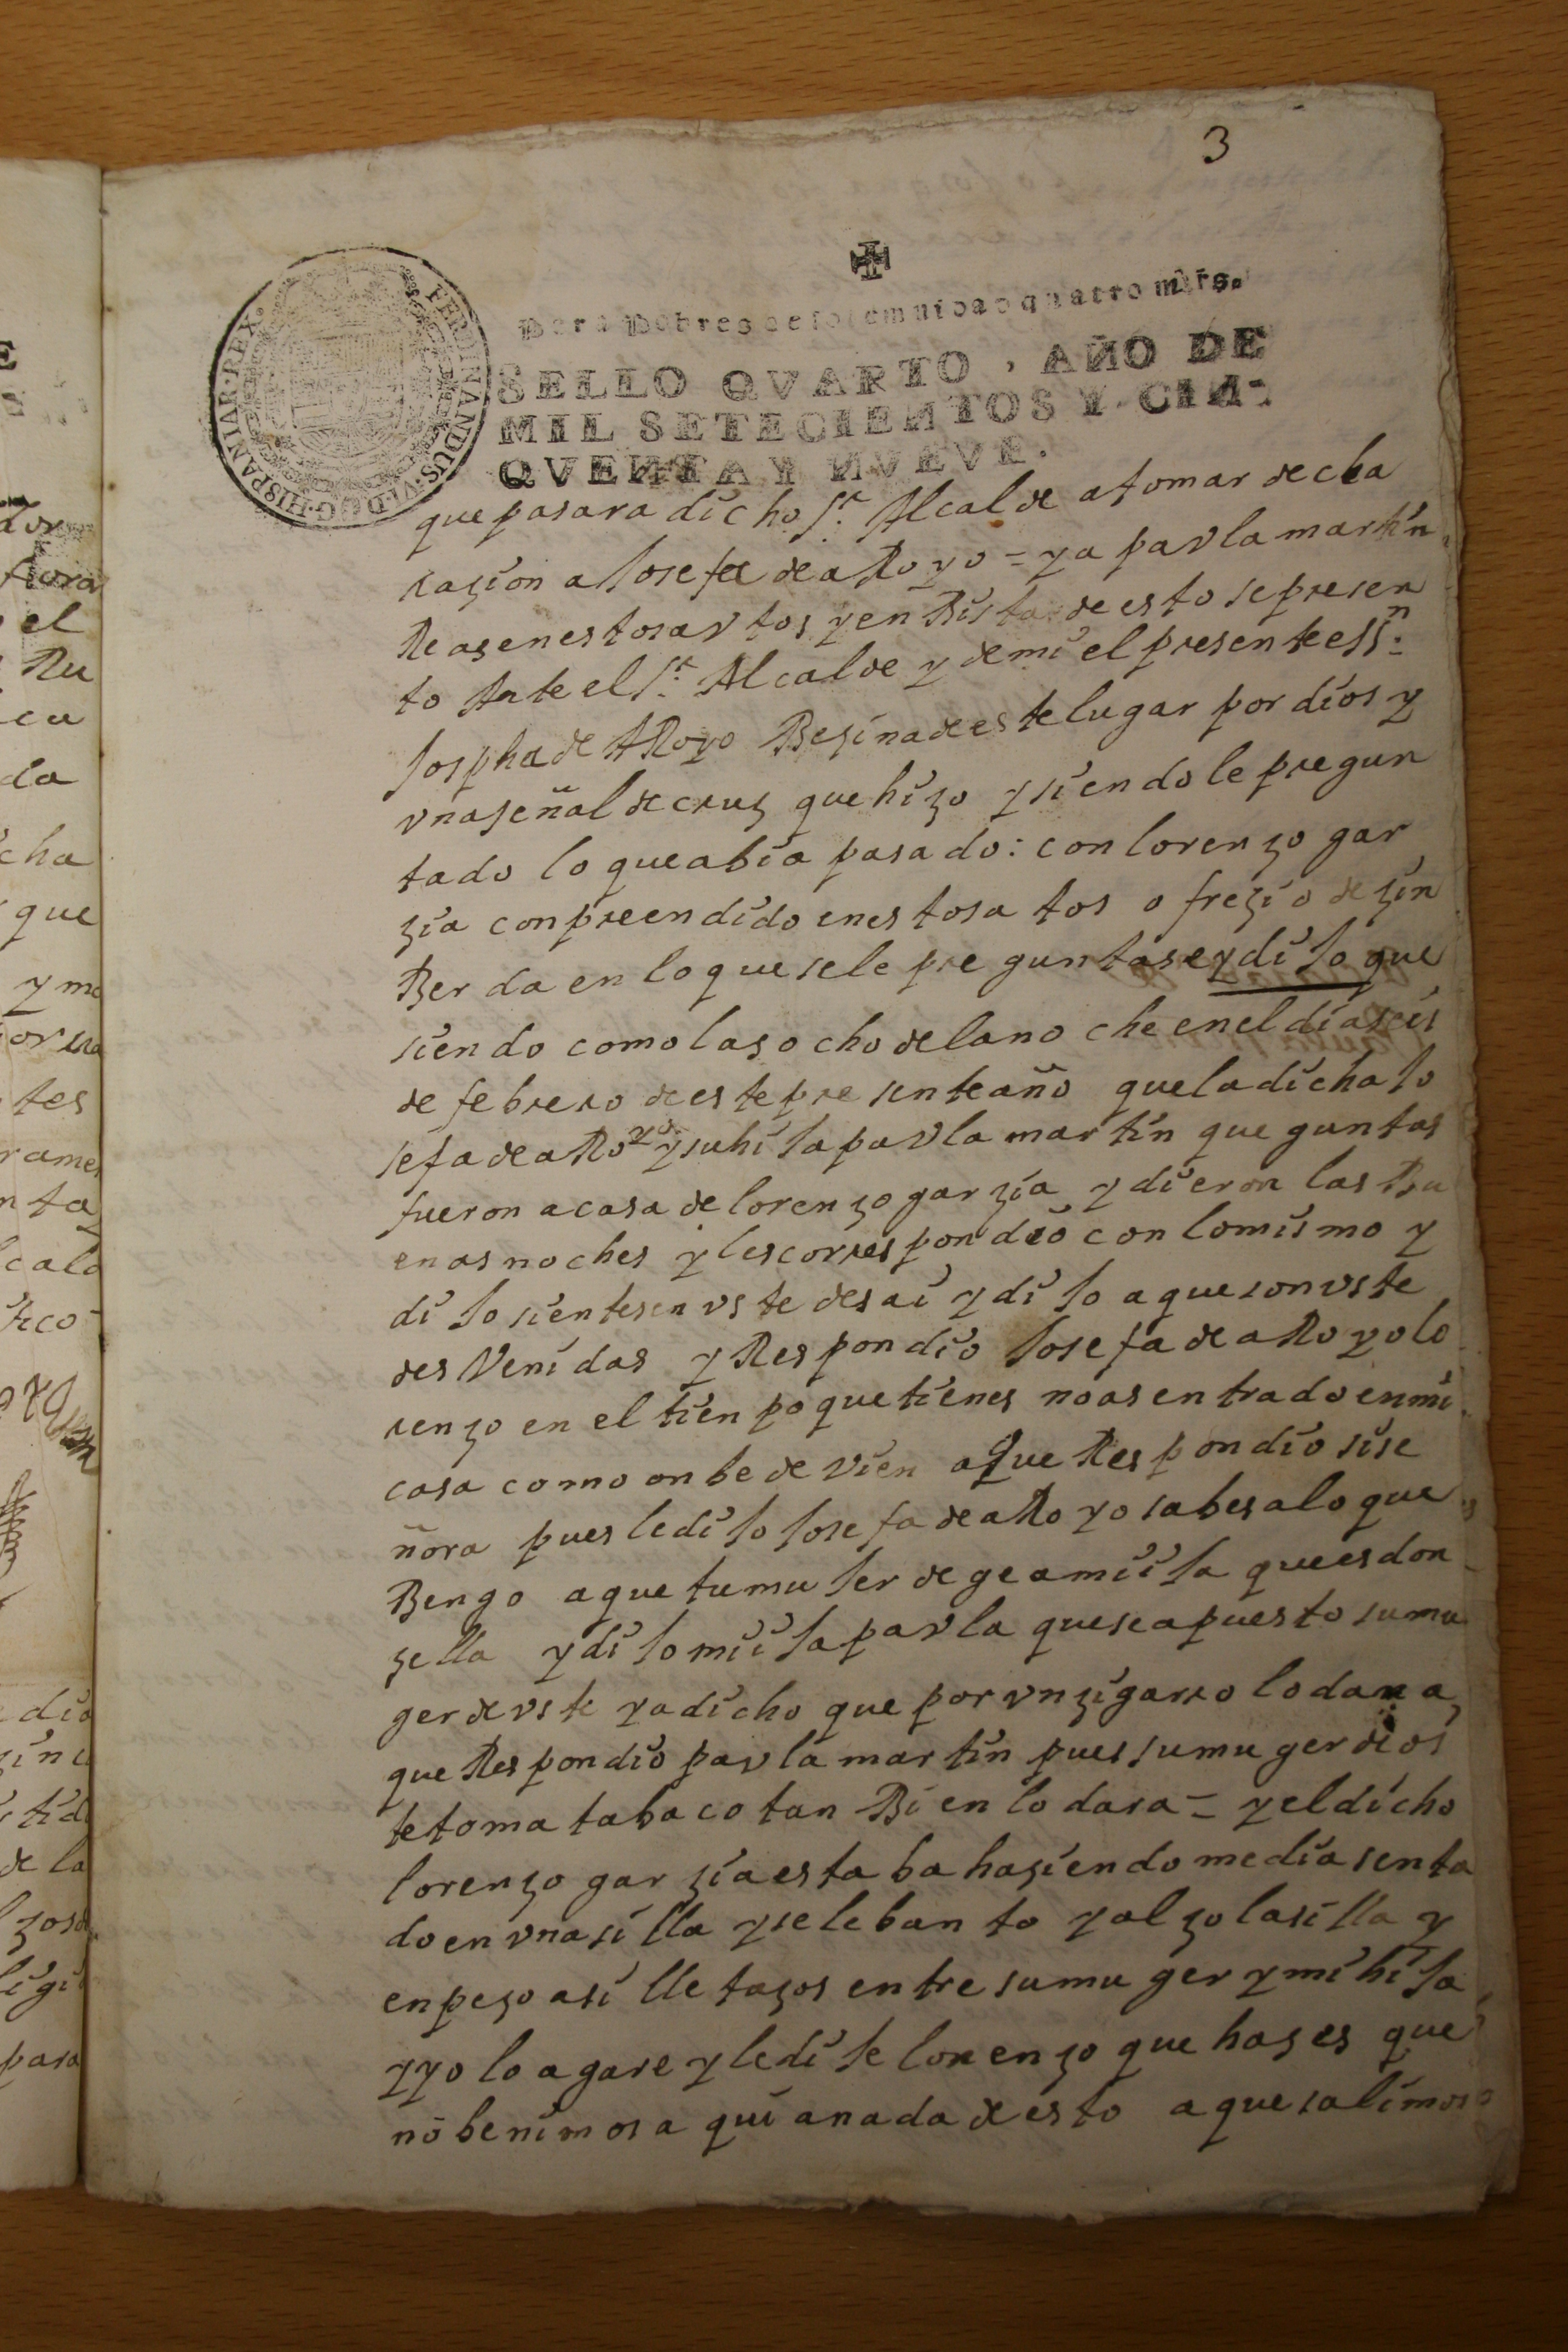 3
✠
Para Pobres de solemnidad quatro mrs.
SELLO QVARTO, AÑO DE
MIL SETECIENTOS Y CIN-
QVENTA Y NVEVE.
FERDINANDUS·VI·D·G·HISPANIAR·REX·
que pasara dicho Sr. Alcalde a tomar decla
razion a Josefa de aRoyo = y a pavla martin
Reas en estos avtos y en Bista de esto se presen
to Ante el Sr. Alcalde y de mi el presente essn.
Jospha de ARoyo Bezina de este lugar por dios y
vna señal de cruz que hizo y siendole pregun
tado lo que abia pasado: con lorenzo gar
zia conpreendido en estos atos ofrezio dezin
Berda en lo que se le preguntase y dijo que
siendo como las ocho de la noche en el dia seis
de febrero de este presente año que la dicha Jo
sefa de aRoyo y su hija pavla martin que guntas
fueron a casa de lorenzo garzia y dieron las Bu
enas noches y les correspondio con lo mismo y
dijo sientesen vstedes ai y dijo a que son vste
des Venidas y Respondio Josefa de aRoyo lo
renzo en el tienpo que tienes no as entrado en mi
casa como onbe de vien a que Respondio si se
ñora pues le dijo Josefa de aRoyo sabes a lo que
Bengo a que tu mujer dege a mi ija que es don
zella y dijo mi ija pavla que se a puesto su mu
ger de vste y a dicho que por vn zigarro lo dara a
que Respondio pavla martin pues su muger de os
te toma tabaco tan Bien lo dara = y el dicho
lorenzo garzia estaba haziendo media senta
do en vna silla y se lebanto y alzo la silla y
enpezo a silletazos entre su muger y mi hija
y yo lo agare y le dije lorenzo que hazes que
no benimos a qui a nada de esto a que salimos